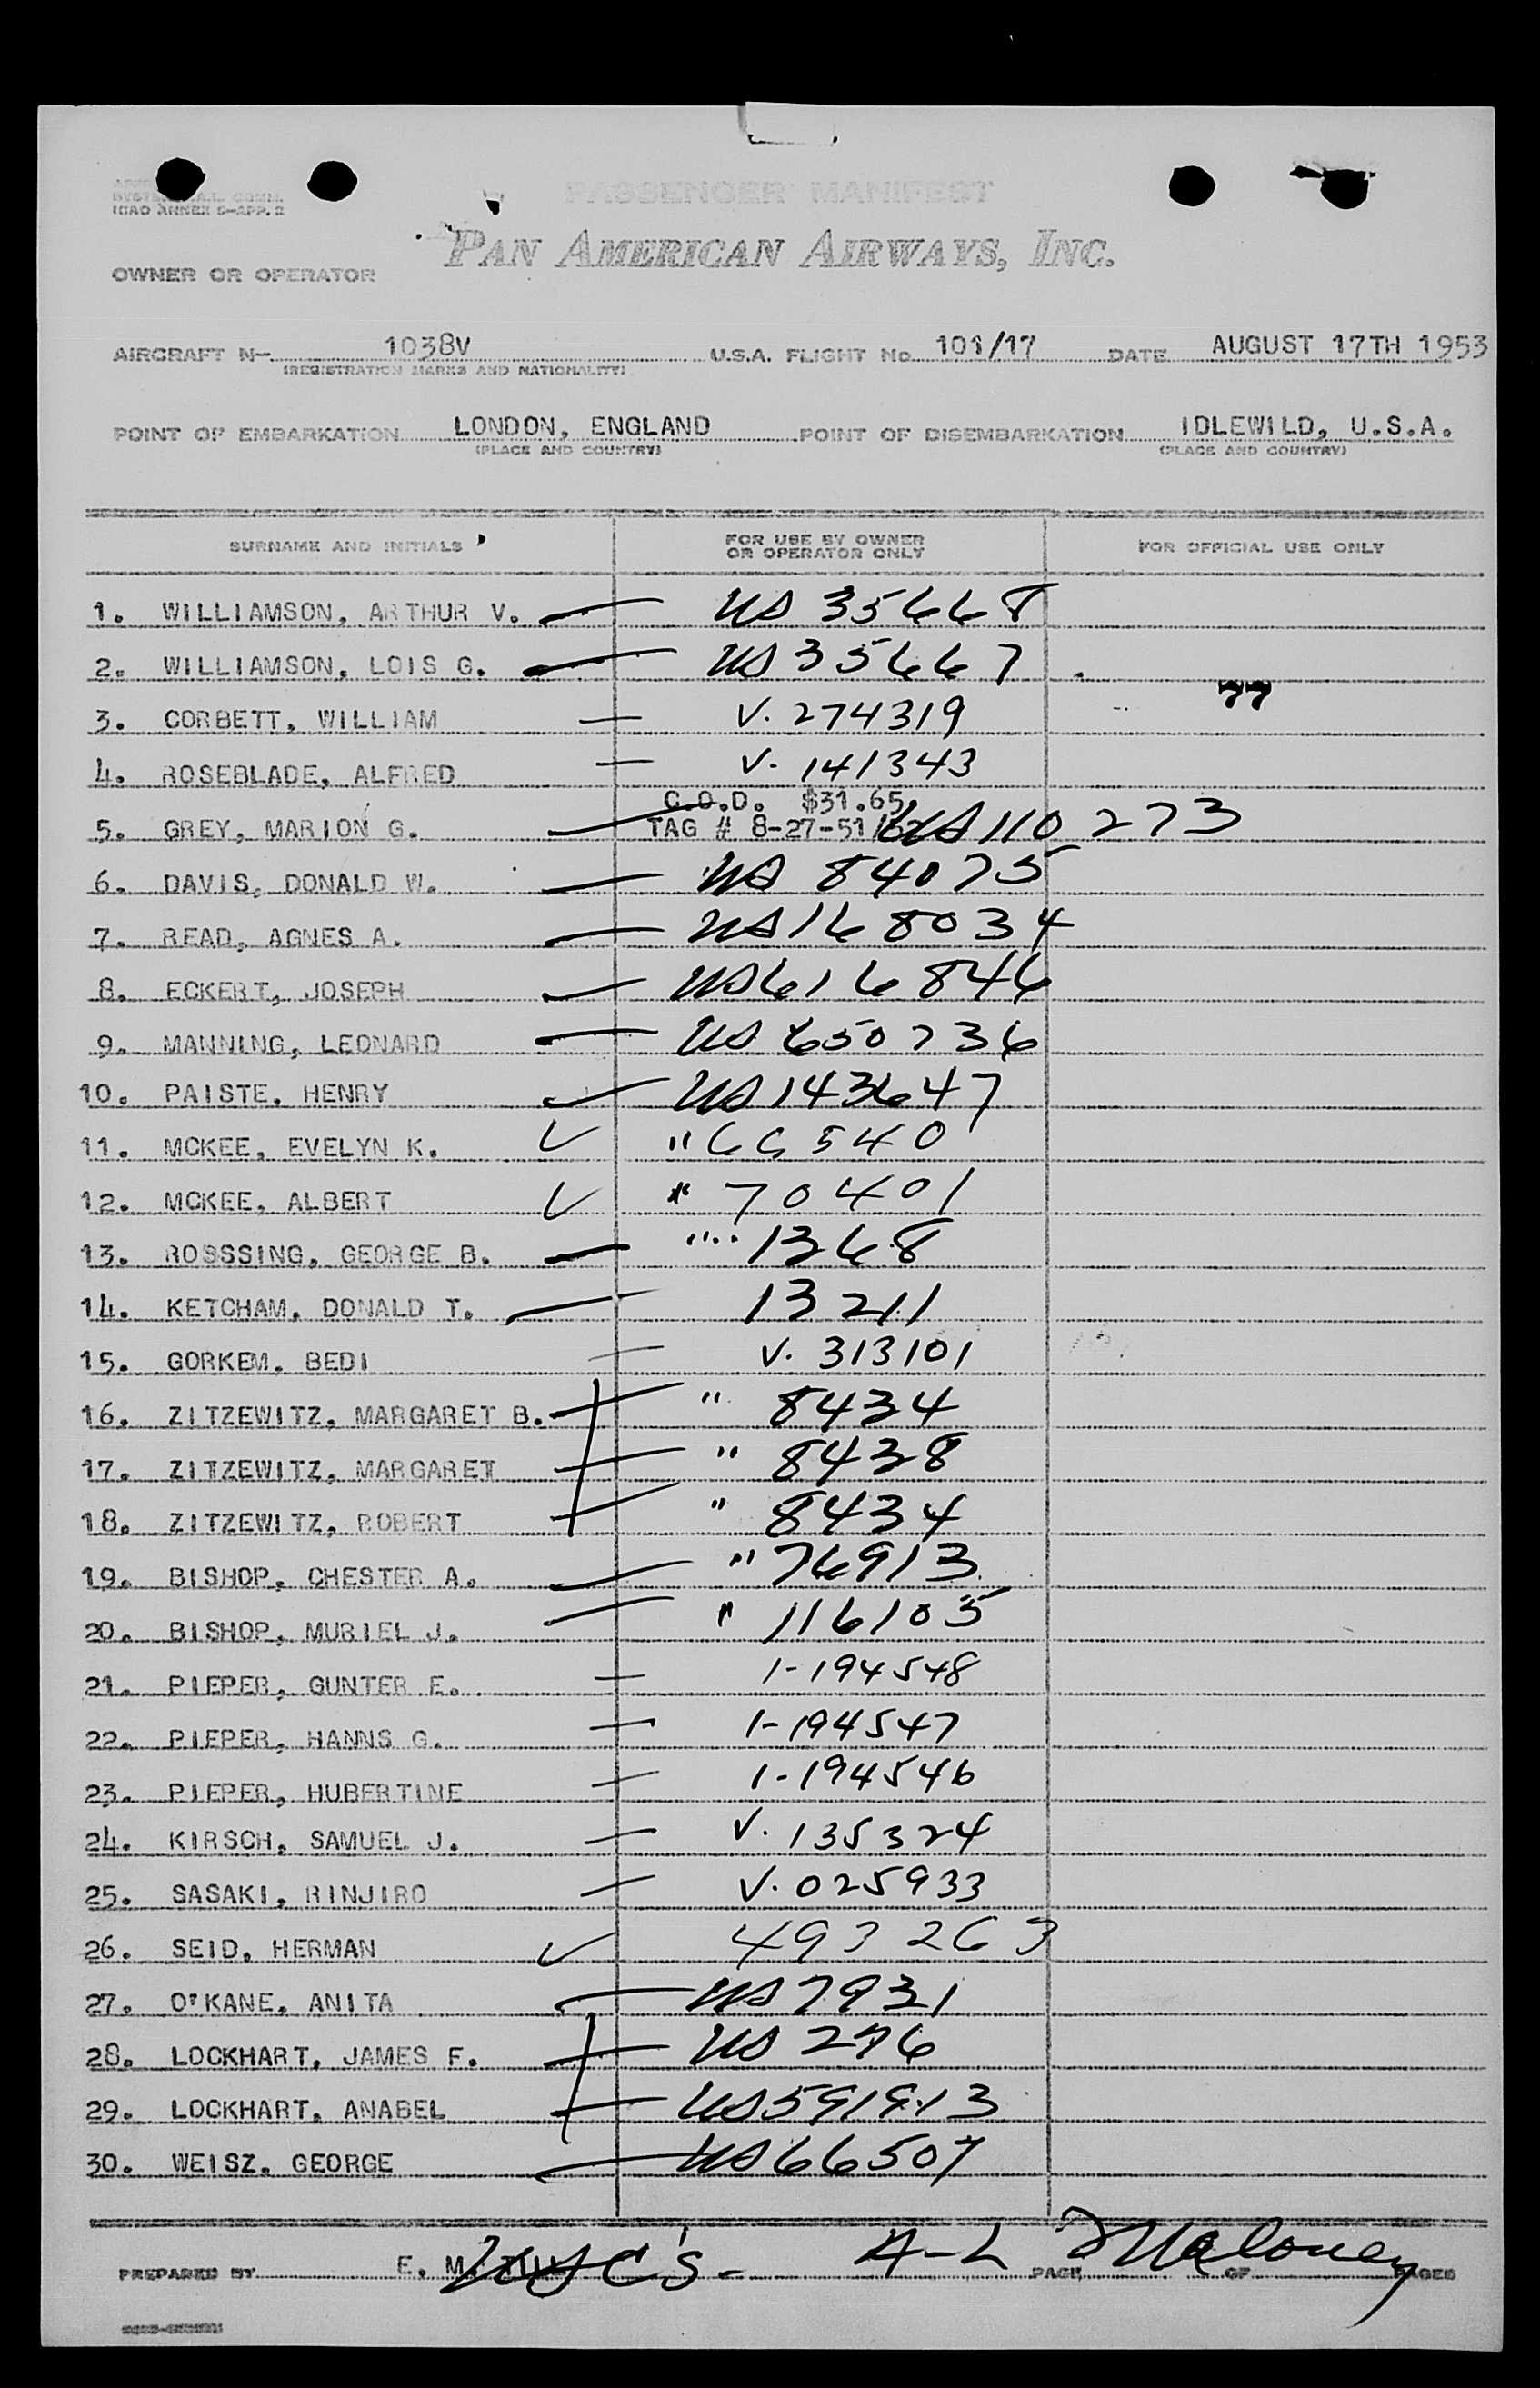 ICAO ANNEX 9-APP. 2
PASSENGER MANIFEST
PAN AMERICAN AIRWAYS, INC.
OWNER OR OPERATOR
AIRCRAFT N- 1038V U.S.A. FLIGHT No. 101/17 DATE AUGUST 17TH 1953
(REGISTRATION MARKS AND NATIONALITY)
POINT OF EMBARKATION LONDON, ENGLAND POINT OF DISEMBARKATION IDLEWILD, U.S.A.
(PLACE AND COUNTRY) (PLACE AND COUNTRY)
SURNAME AND INITIALS FOR USE BY OWNER OR OPERATOR ONLY FOR OFFICIAL USE ONLY
1. WILLIAMSON, ARTHUR V. US 35668
2. WILLIAMSON, LOIS G. US 35667
77
3. CORBETT, WILLIAM V. 274319
4. ROSEBLADE, ALFRED V. 141343
C.O.D. $31.65
5. GREY, MARION G. TAG # 8-27-51 US 110 273
6. DAVIS, DONALD W. US 84075
7. READ, AGNES A. US 168034
8. ECKERT, JOSEPH US 616846
9. MANNING, LEONARD US 650736
10. PAISTE, HENRY US 143647
11. MCKEE, EVELYN K. " 66540
12. MCKEE, ALBERT " 70401
13. ROSSSING, GEORGE B. " 1368
14. KETCHAM, DONALD T. 13211
15. GORKEM, BEDI V. 313101
16. ZITZEWITZ, MARGARET B. " 8434
17. ZITZEWITZ, MARGARET " 8438
18. ZITZEWITZ, ROBERT " 8434
19. BISHOP, CHESTER A. " 76913
20. BISHOP, MURIEL J. " 116105
21. PIEPER, GUNTER E. 1-194548
22. PIEPER, HANNS G. 1-194547
23. PIEPER, HUBERTINE 1-194546
24. KIRSCH, SAMUEL J. V. 135324
25. SASAKI, RINJIRO V. 025933
26. SEID, HERMAN 493263
27. O'KANE, ANITA US 7931
28. LOCKHART, JAMES F. US 276
29. LOCKHART, ANABEL US 591913
30. WEISZ, GEORGE US 66507
PREPARED BY E. A-L Maloney PAGE OF PAGES